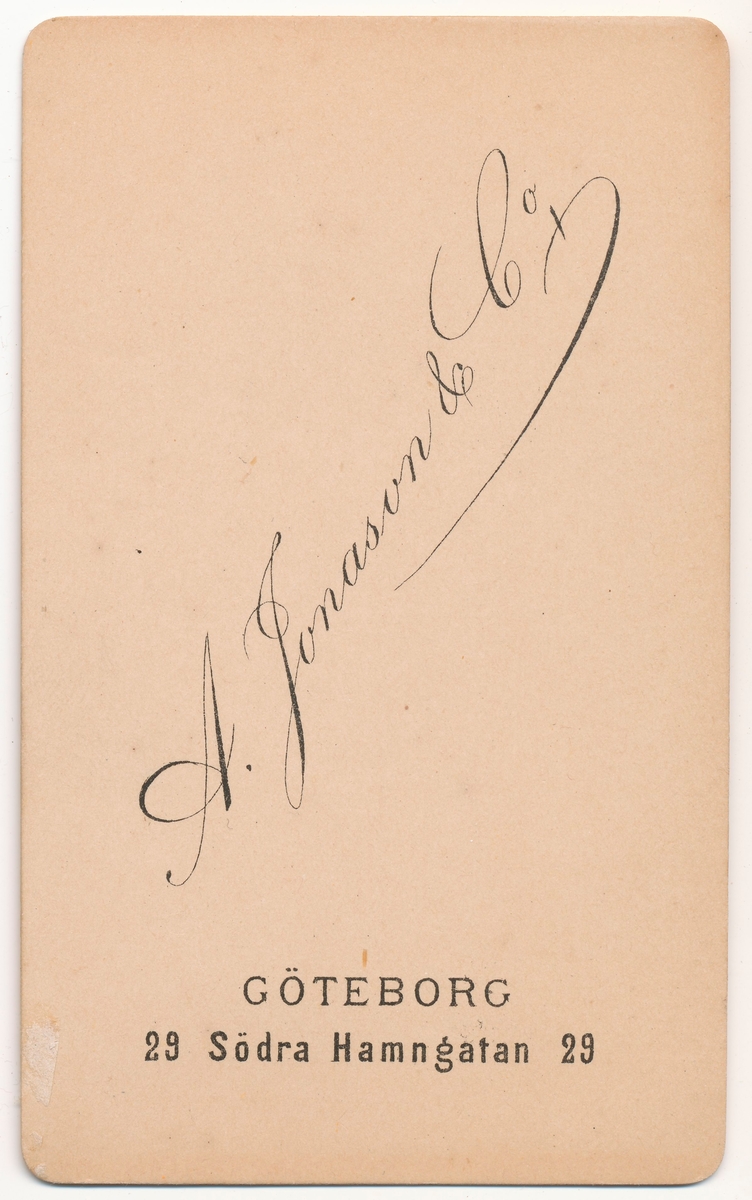 A. Jonason & Co
GÖTEBORG
29 Södra Hamngatan 29